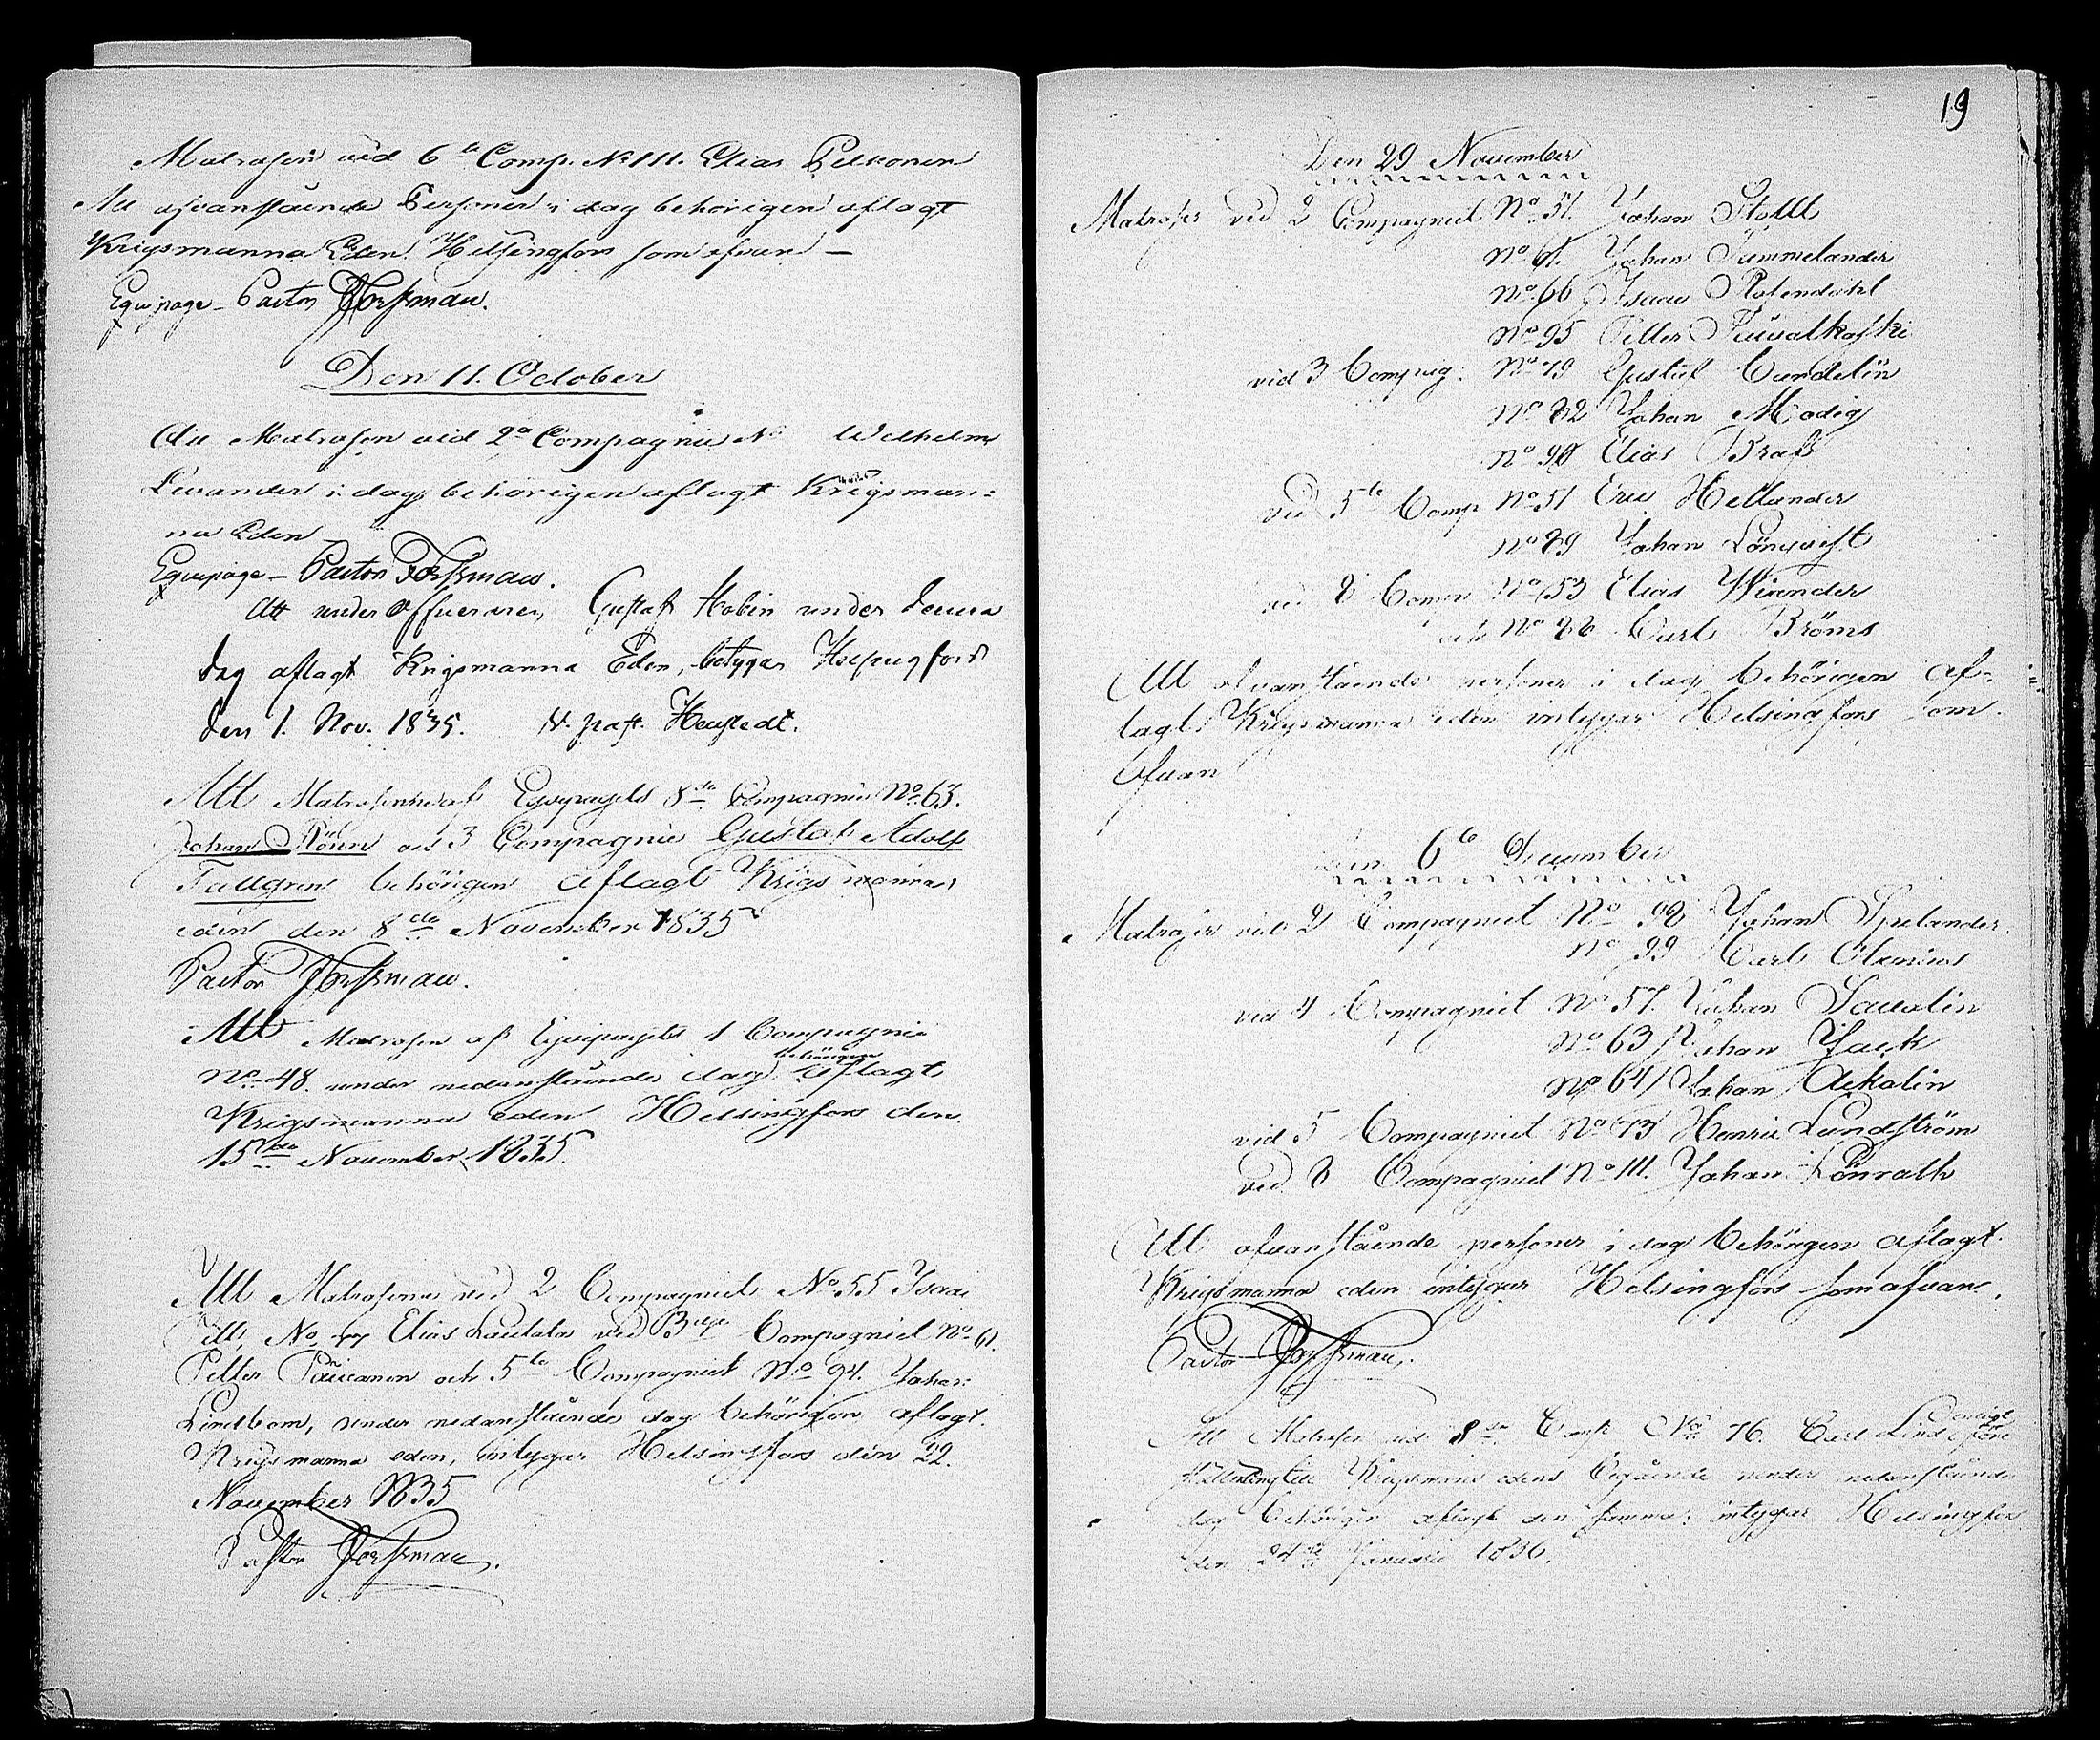 Matrosen vid 6te Comp. No 111. Elias Pelkonen
Att ofvanstående Personer i dag behörigen aflagt
Krigsmanna Eden. Helsingfors som ofvan –
Equipage-Pastor Forssman.
Den 11. October
Att Matrosen vid 2a Compagnie No Wilhelm
Levander i dag behörigen aflagt Krigsman-
na Eden
Equipage-Pastor Forssman.
Att under Officeraren, Gustaf Hobin under denna
dag aflagt Krigsmanna Eden, betygar Helsingfors
den 1. Nov. 1835. Past.
Att Matroserne af Equipagets 8de Compagnie No 63.
Johan och 3 Compagnie Gustaf Adolf
Fallgren behörigen aflagt Krigsmanna
eden den 8de November 1835
Pastor Forssman.
Att Matrosen af Equipagets 1 Compagnie
No 48. under nedanstående dag behörigen aflagt
Krigsmanna eden Helsingfors den
15de November 1835.
Att Matroserna vid 2 Compagniet No 55 Isaac
No Elias Lautala vid 3 Compagniet No 61.
Petter och 5te Compagniet No 94. Johan
Lindbom, under nedanstående dag behörigen aflagt
Krigsmanna eden, intygar Helsingfors den 22.
November 1835
Pastor Forssman.
19
Den 29 November
Matroser vid 2 Compagniet No 51. Johan Stolt
No 61. Johan Tummelander
No 66 Isaac Rosendahl
No 95 Petter
vid 3 Compag: No 79 Gustaf Cundelin
No 82 Johan Modig
No 90 Elias Brask
vid 5te Comp No 51 Eric Hellander
No 89 Johan Lönqvist
vid 8 Comp No 53 Elias Wirander
och No 88 Carl Bröms
Att ofvanstående personer i dag behörigen af-
lagt Krigsmanna eden intygar Helsingfors som
ofvan
Den 6te December
Matroser vid 2 Compagniet No 98 Johan Spelander.
No 99 Carl Alenius
vid 4 Compagniet No 57. Johan Savolin
No 63 Johan Jack
No 64 Johan Ackalin
vid 5 Compagniet No 73 Henric Lundström
vid 8 Compagniet No 111. Johan Lönroth
Att ofvanstående personer i dag behörigen aflagt
Krigsmanna eden intygar Helsingfors som ofvan.
Pastor Forssman.
Att Matrosen vid 8de Comp No 76. Carl Lind enligt
Krigsmans edens begående under nedanstående
dag behörigen aflagt den samma; intygar Helsingfors
den 24de Januarii 1836.